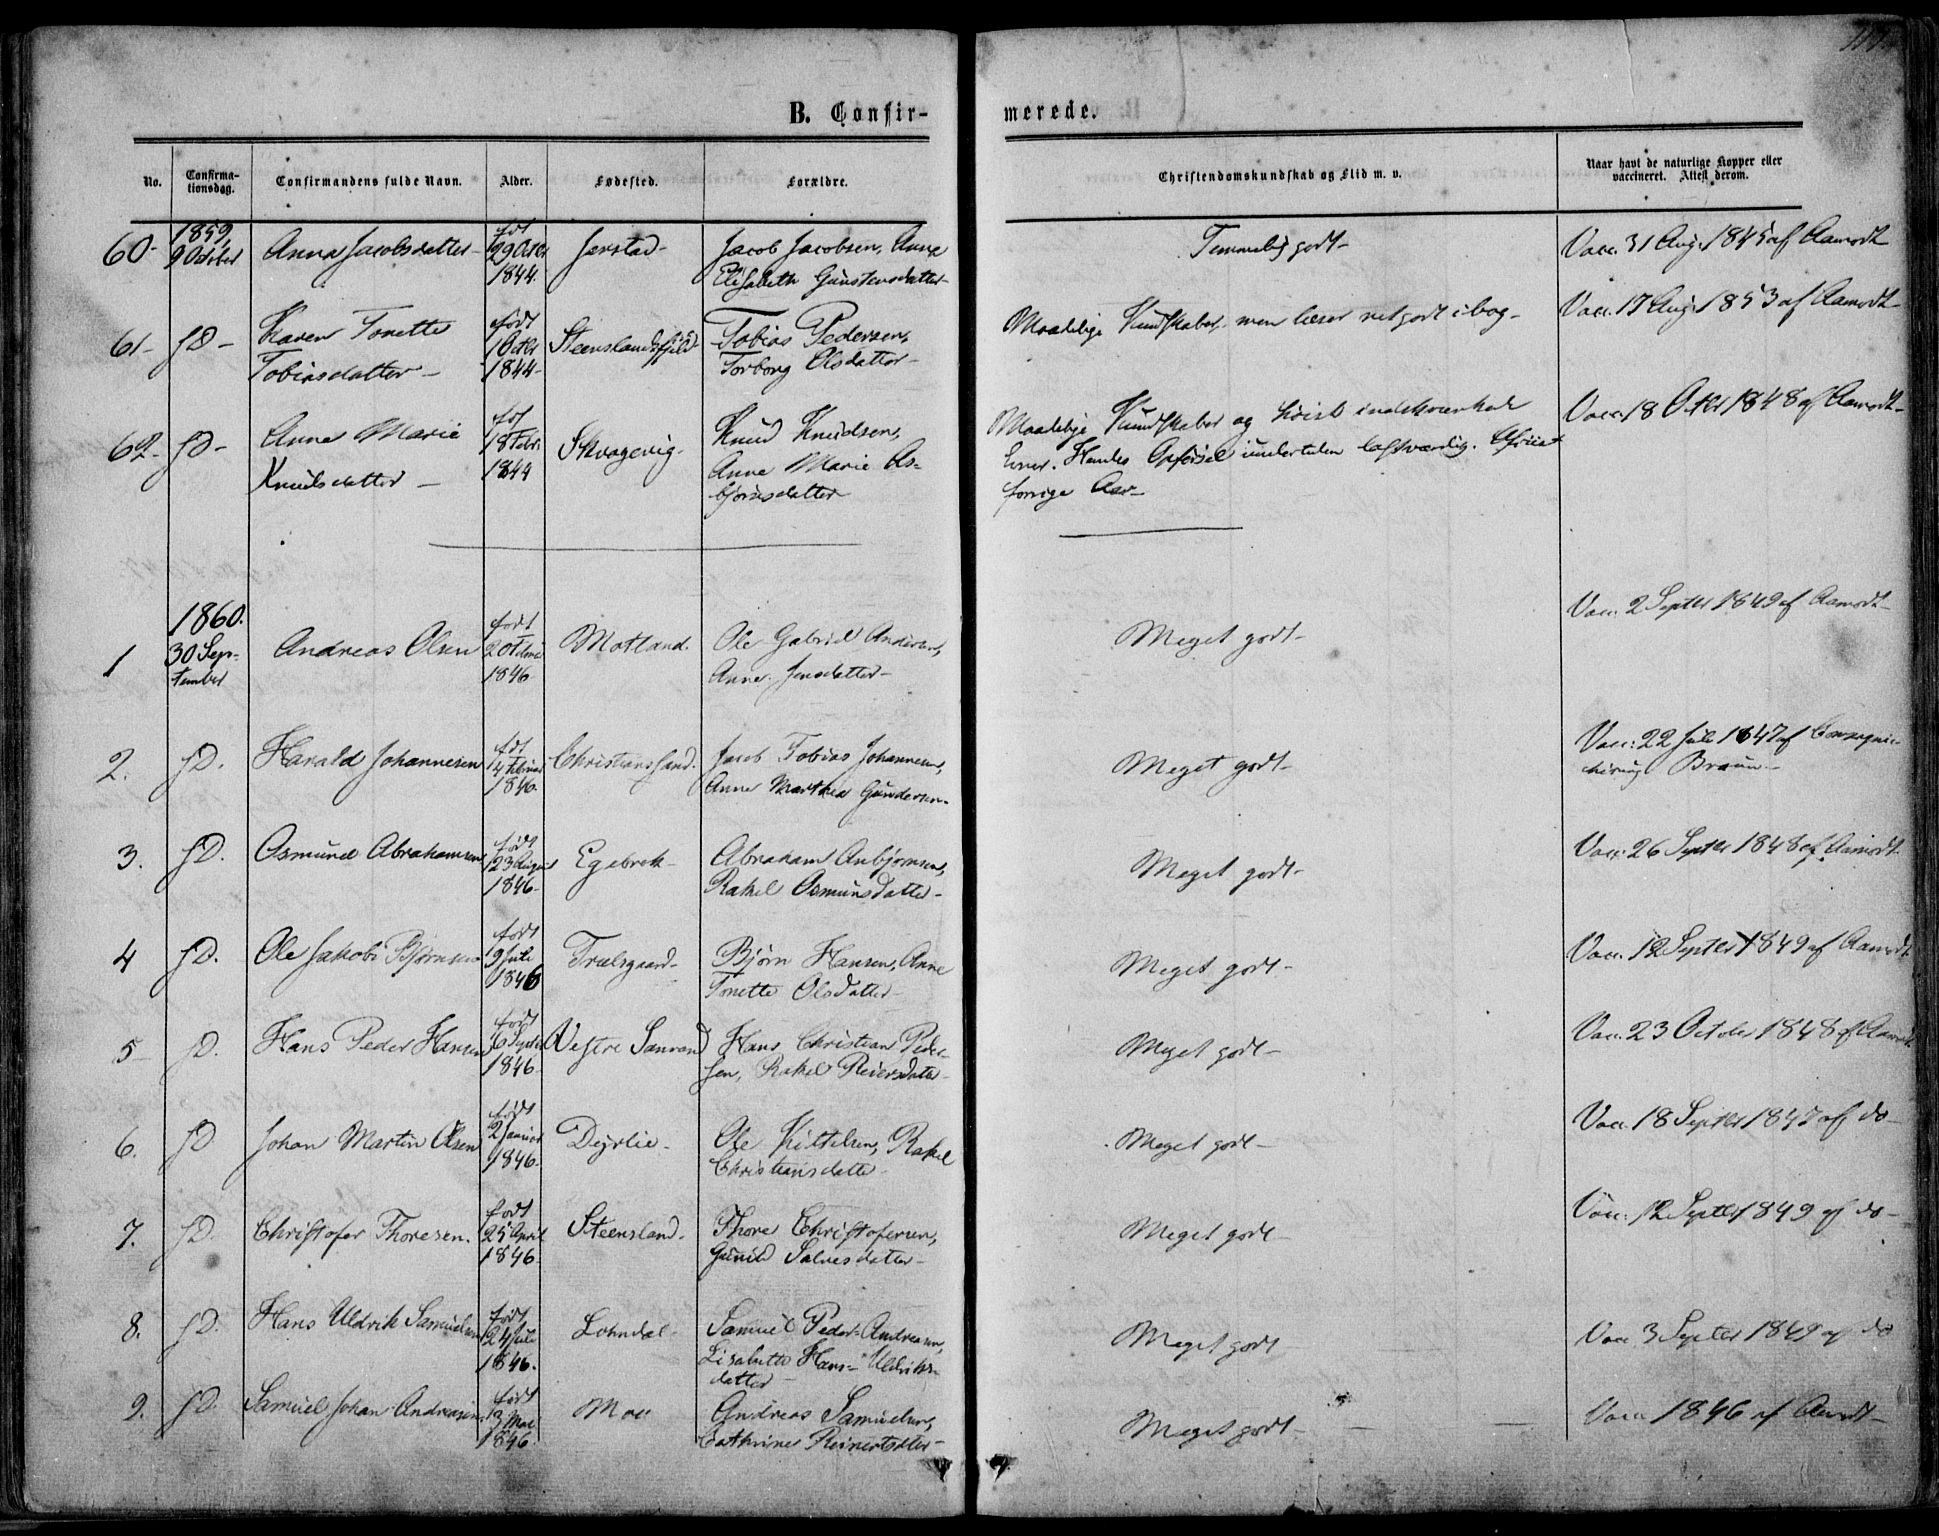 B. Confir-
merede.
No.
Confirma-
tionsdag.
Confirmandens fulde Navn.
Alder.
Fødested.
Forældre.
Christendomskundskab og Flid m. v.
Naar havt de naturlige Kopper eller
vaccineret. Attest derom.
1859
60- 9 October Anna Jacobsdatter- føt 29 Octbr 1844. Jerstad- Jacob Jacobsen, Anne
Elisabeth Gunstensdatter-
Temmelig godt-
Vacc. 31 Aug. 1845 af Aamodt
61- JD- Karen Tonette
Tobiasdatter-
født
1 Octbr
1844-
Steenslandsfjeld
Tobias Pedersen,
Torborg Olsdatter-
Maadelige Kundskaber, men læser ret godt i bog-
Vacc. 17 Aug. 1853 af Aamodt-
62- JD- Anne Marie
Knudsdatter-
føt
18 Febr.
1844
Skragevig-
Knud Knudsen,
Anne Marie As-
bjørnsdatter
Maadelige Kundskaber og høist indskrænkede
Evner. Hendes Opførsel undertiden lastværdig.
forrige Aar-
Vacc. 18 Octbr 1848 af Aamodt-
1860.
1 30 Sep-
tember
Andreas Olsen
født
20 Febr
1846
Motland.
Ole Gabriel Andersen,
Anne Jensdatter-
Meget godt-
Vacc. 2 Septbr 1849 af Aamodt-
2. JD. Harald Johannesen
føt
14 Februar
1846.
Christianssand.
Jacob Tobias Johannesen,
Anne Marthea Gundersen-
Meget godt-
Vacc. 22 Juli 1847 af
Braun-
3. JD. Osmund Abrahamsen
født
23 August
1846-
Egebrok-
Abraham Anbjørnsen,
Rakel Osmunsdatter-
Meget godt-
Vacc. 26 Septbr 1848 af Aamodt-
4 JD. Ole Jakob Bjørnsen
født
9 Juli
1846
Trælsgaard-
Bjørn Hansen, Anne
Tonette Olsdatter-
Meget godt-
Vacc. 12 Septbr 1849 af Aamodt
5- JD. Hans Peder Hansen
født
6 Septbr
1846-
Vestre Sanvand
Hans Christian Peder-
sen, Rakel Reiersdatter-
Meget godt-
Vacc. 23 October 1848 af Aamodt
6. JD Johan Martin Olsen
født
2 Januar
1846-
Dyrlie-
Ole Kittelsen, Rakel
Christiansdatter-
Meget godt-
Vacc. 18 Septbr 1847 af do-
7. JD. Christofer Thoresen.
født
25 April
1846-
Steensland.
Thore Christofersen,
Gunild Salvesdatter-
Meget godt-
Vacc. 12 Septbr 1849 af do-
8. JD. Hans Uldrik Samuelsen
født
24 Juli
1846.
Lohndal-
Samuel Peder Andreasen,
Lisabette Hans- Uldriks-
datter-
Meget godt-
Vacc 3 Septbr 1849 af do
9. JD. Samuel Johan Andreasen
født
13 Mai
1846.
Moe
Andreas Samuelsen,
Cathrine Reinertsdatter-
Meget godt-
Vacc 1846 af Aamodt-